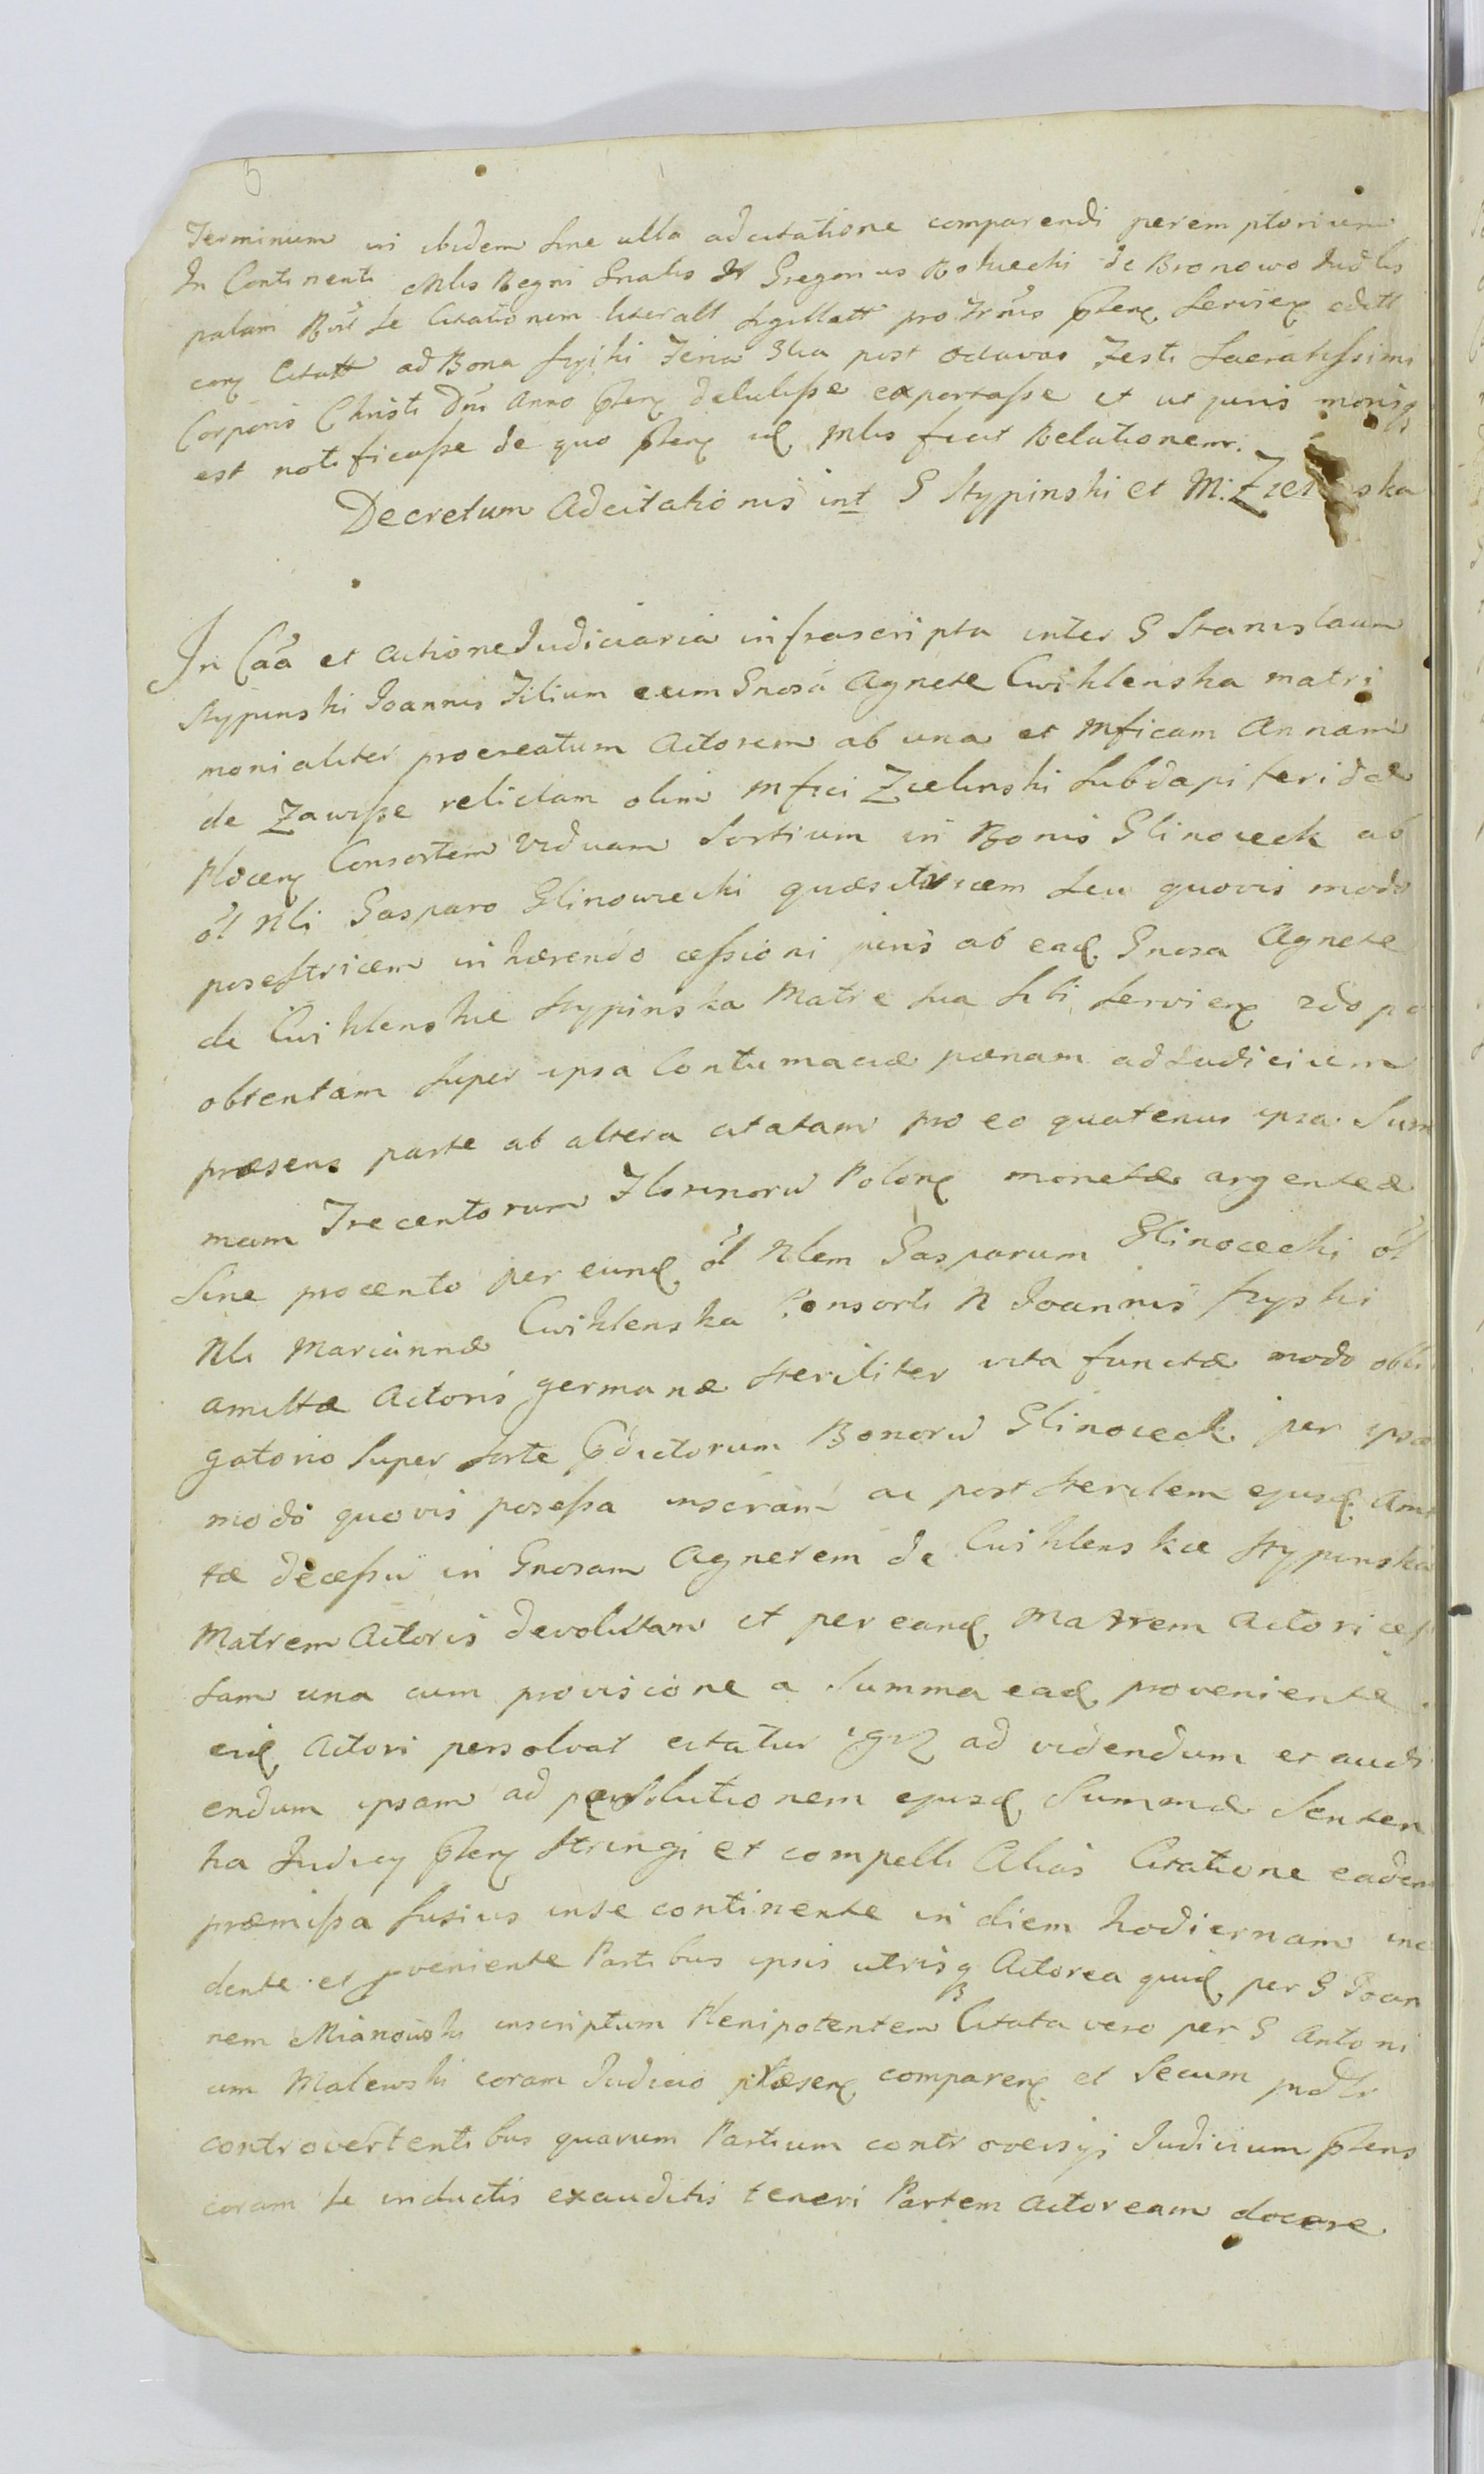 5
Terminum in ibidem sine ulla adcitatione comparendi peremptorium
In Continenti Mlis Regni Gnalis Gregorius Rokucki de Bronowo Judlis
palam Rnt se Citationem literall sigillatt pro Trnis pnten servien edit
cen Citatt ad Bona Szyiki Feria 3tia post octavas Festi Sacratissimi
Corporis Christi Dni Anno pnten detulisse exportasse et ut juris morisq
est notificasse de quo pnten id Mlis fecit Relationem.
Decretum Adcitationis int G Stypinski et M. Ziel ska
In Caa et actione Judiciaria infrascripta inter G Stanislaum
Stypinski Joannis Filium eum Gnosa Agnete Cwiklenska matri
monialiter procreatum Actorem ab una et Mficam Annam
de Zawisze relictam olim Mfici Zielinski Subdapiferidae
Plocen Consortem Viduam Sortium in Bonis Glinoieck ab
ol Nli Gasparo Glinowiecki quaesitricem seu quovis modo
posestricem inhaerendo cessioni juris ab ead Gnosa Agnete
de Cwiklenskie Stypinska Matre sua sibi servien
obtentam super ipsa Contumaciae paenam ad Judicium
praesens parte ab altera citatam pro eo quatenus ipsa Sum
mam Trecentorum Florenoru Polon moneta argentea
sine procento per eund ol Nlem Gasparum Glinoiecki ol
Nli Mariannae Cwiklenska Consorti N Joannis Szyski
amittae Actoris germanae steriliter vita functae modo obli
gatorio super sorte pdictorum Bonoru Glinoieck per ipsa
modo quovis posessa inscram ac post sterilem ejusd Ami
tae decessu in Gnosam Agnetem de Cwiklenskie Stypinska
Matrem Actoris devolutam et per eand Matrem Actori ces
sam una cum provisione a Summa ead proveniente
eid Actori persolvat citatur igr ad videndum et audi
endum ipsam ad persolutionem ejusd Summae Senten
tia Judicy pnten stringi et compelli Alias Citatione eadem
praemissa fusius in se continente in diem hodiernam inci
dente et pveniente Partibus ipsis utrisq Actorea quid per G Joan
nem Mianowski inscriptum Plenipotentem Citata vero per G Antoni
um Malewski coram Judicio praesen comparen et secum judlr
controvertentibus quarum Partium controversijs Judicium pntens
coram se inductis exauditis teneri Partem Actoream docere